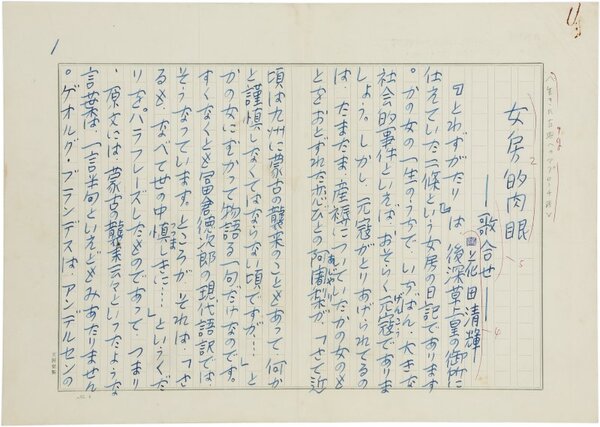 女房的肉眼
――歌合せ――
花田清輝
『とわずがたり』は、後深草上皇の御所に
仕えていた二條という女房の日記であります
。かの女の一生のうちで、いちばん大きな
社会的事件といえば、おそらく元寇でありま
げんこう
しょう。しかし、元寇がとりあげられてるの
は、たまたま産褥についていたかの女のも
とをおとずれた恋びとの阿闍梨が、「さて近
あじゃり
頃は九州に蒙古の襲来のこともあって何か
と謹慎しなくてはならない頃ですが……」と
かの女にむかって物語る一句だけなのです。
すくなくとも冨倉徳次郎の現代語訳では、
そうなっています。ところが、それは「さ
るも、なべて世の中慎しき……」というくだ
つつま
りを、パラフレーズしたものであって、つまり
、原文には、蒙古の襲来云々といったような
言葉は、一言半句といえどもみあたりません
。ゲオルグ・ブランデスは、アンデルセンの
1